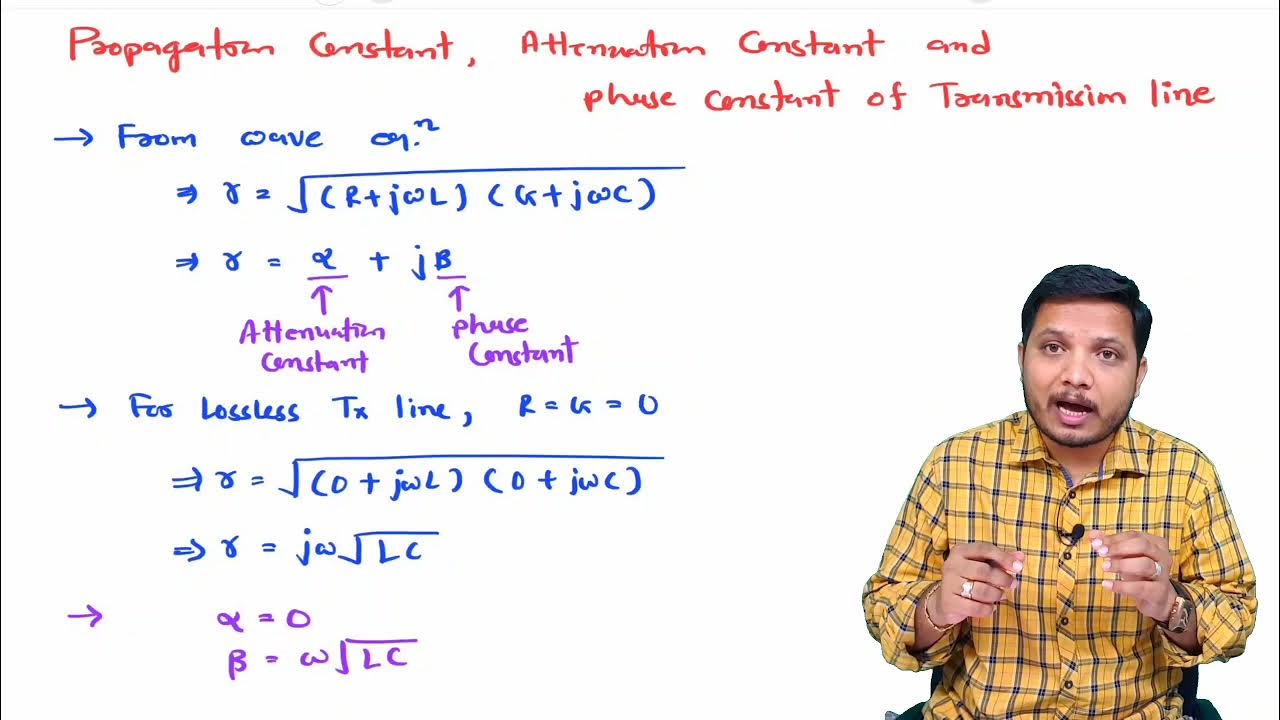 Propagation Constant, Attenuation Constant and
phase constant of Transmission line
→ From wave eq.ⁿ
⇒ γ = √(R+jωL) (G+jωC)
⇒ γ = α + jβ
↑ ↑
Attenuation phase
Constant Constant
→ For Lossless Tx line, R = G = 0
⇒ γ = √(0 + jωL) (0 + jωC)
⇒ γ = jω√LC
→ α = 0
β = ω√LC